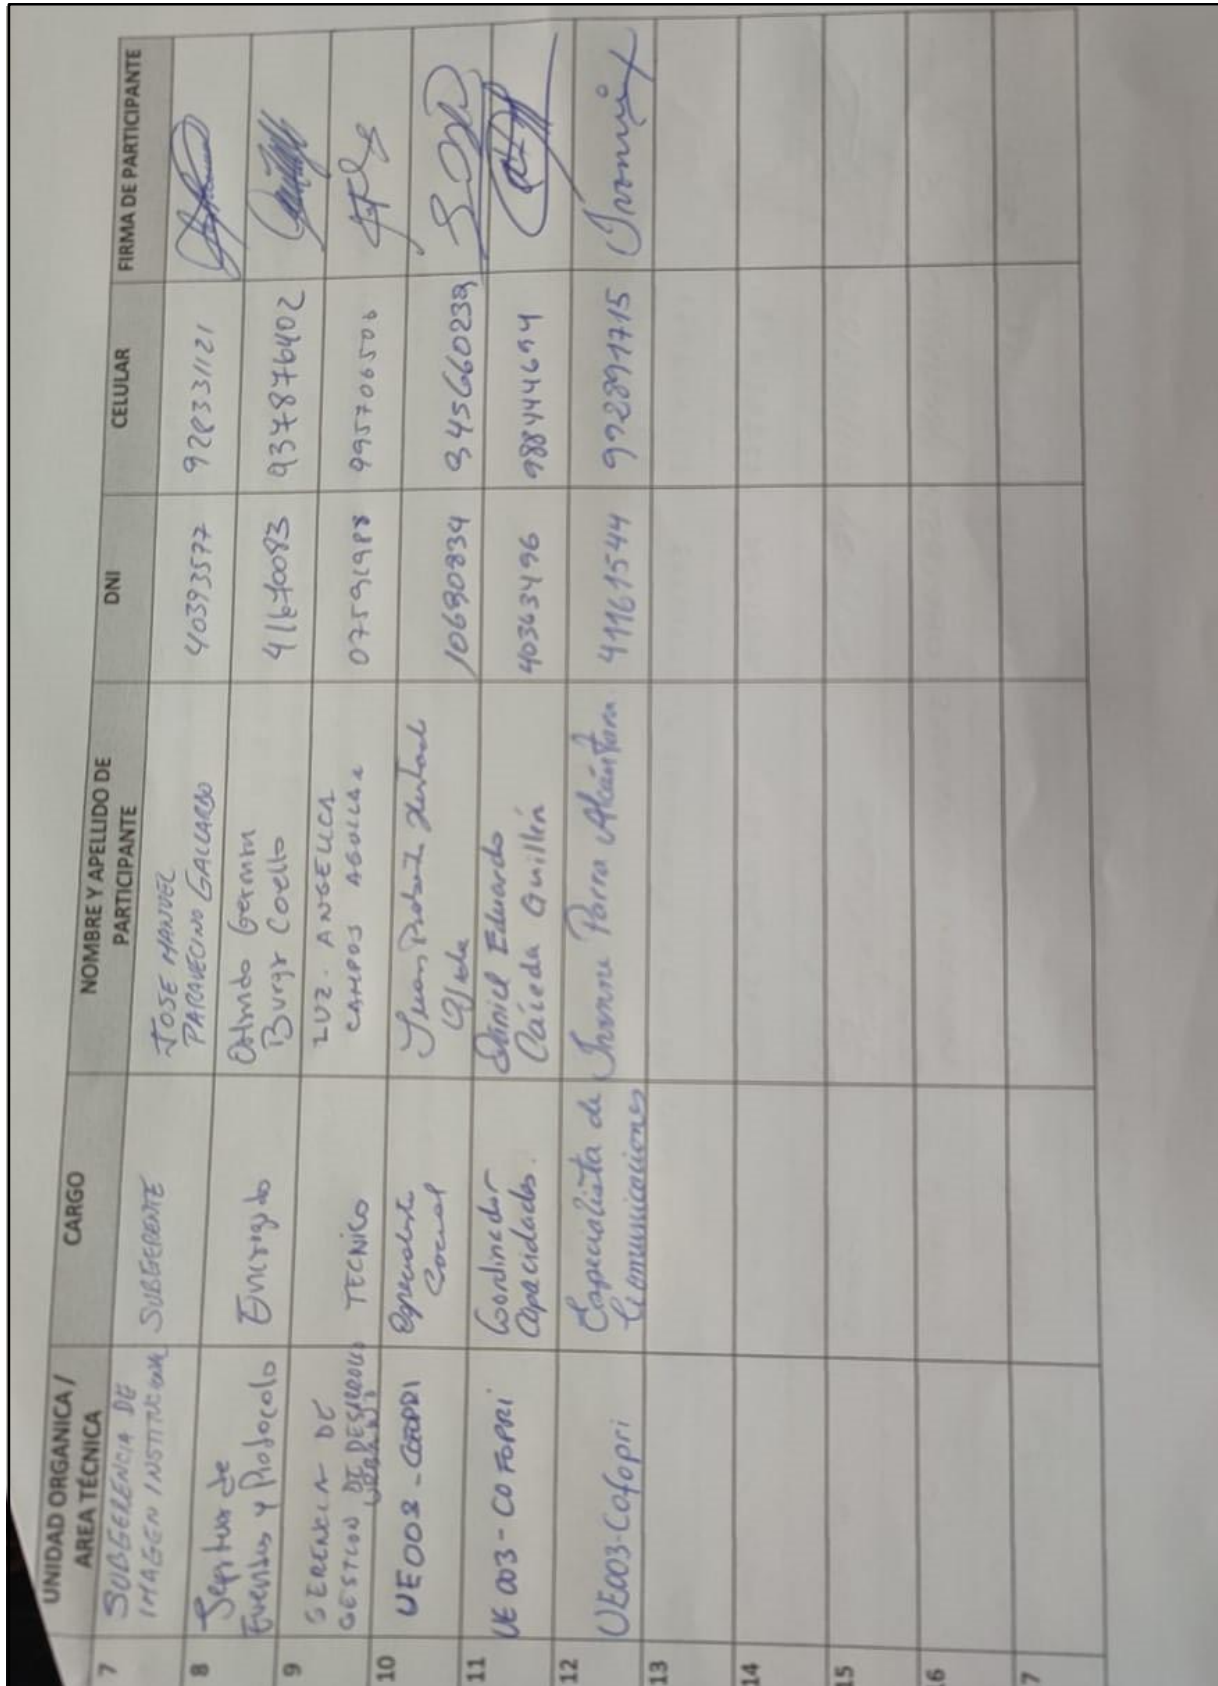 UNIDAD ORGANICA /
AREA TÉCNICA
CARGO
NOMBRE Y APELLIDO DE
PARTICIPANTE
DNI
CELULAR
FIRMA DE PARTICIPANTE
7
SUBGERENCIA DE
IMAGEN INSTITUCIONAL
SUBGERENTE
JOSE MANUEL
PARAVECINO GALLARDO
40393577
928331121
8
de
Eventos y Protocolo
Encargado
German
Burga Coello
41670083
937876402
9
GERENCIA DE
GESTION DE DESARROLLO
URBANO
TECNICO
LUZ ANGELICA
CAMPOS
07591988
995706506
10
UE003 - COFOPRI
Especialista
Social
Juan
10690834
945660239
11
UE 003 - COFOPRI
Coordinador
Capacidades.
Daniel Eduardo
Caiceda Guillén
40363496
988444694
12
UE003-Cofopri
Especialista de
Comunicaciones
Ivonne Parra Alcántara
41161544
992891715
13
14
15
16
17